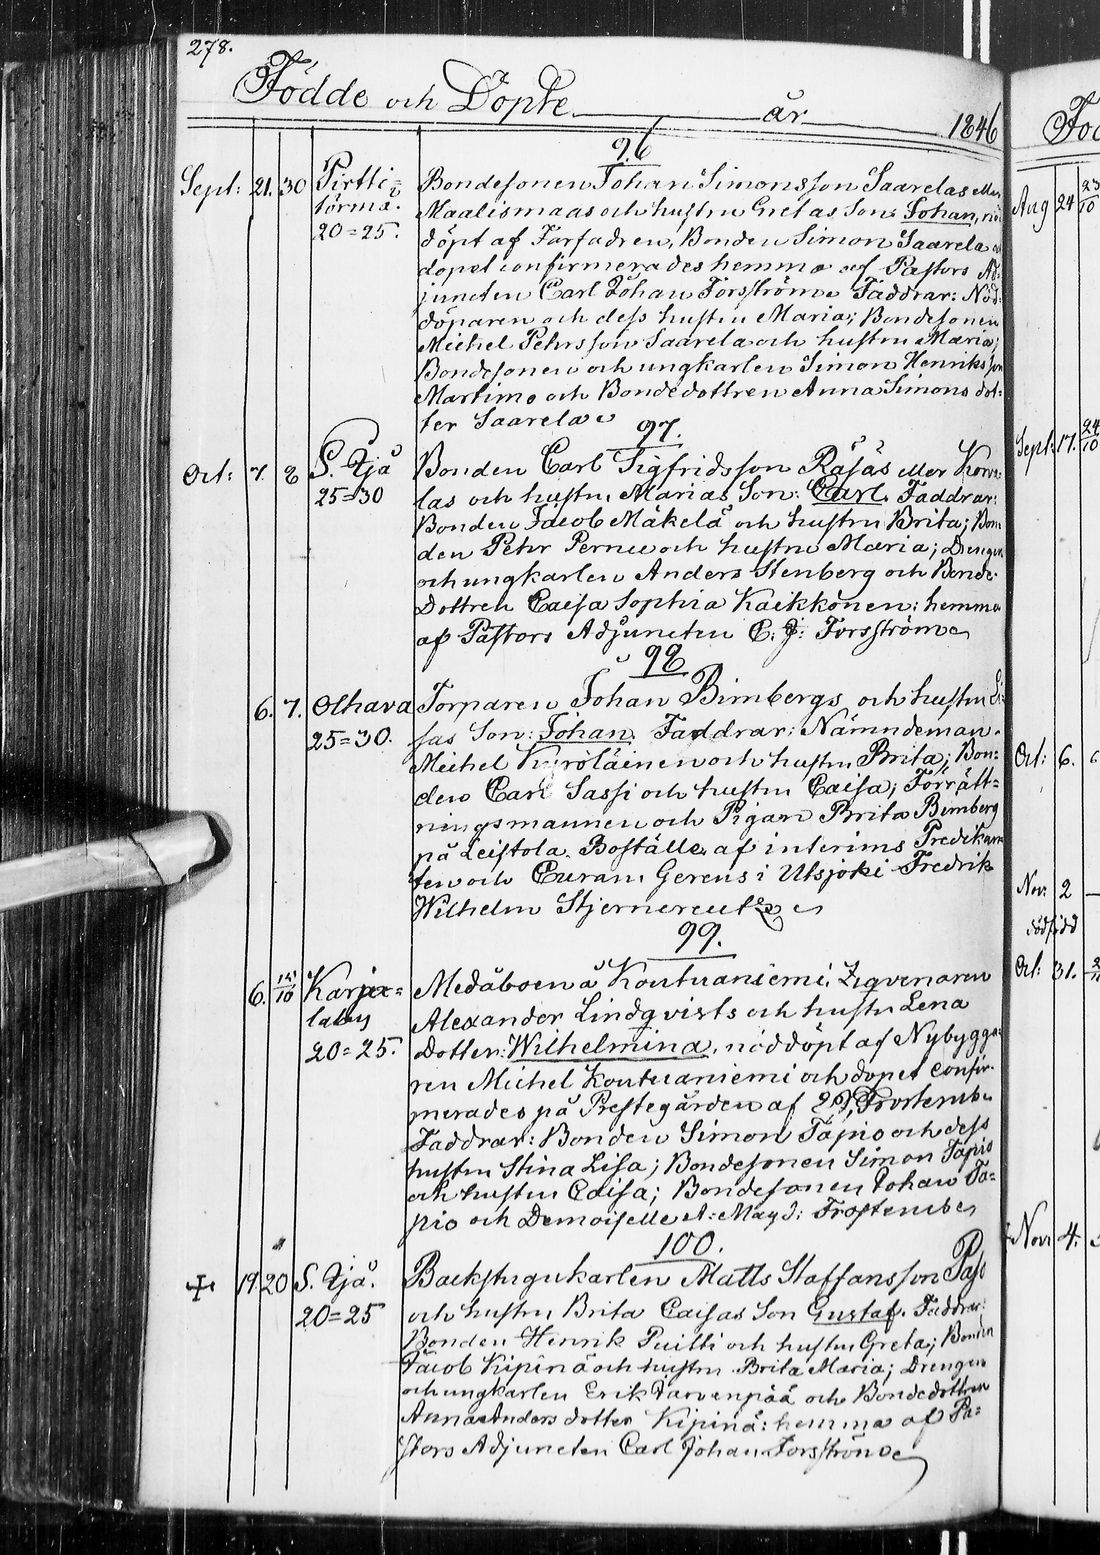 278.
Födde och Döpte år 1846
96
Sept: 21. 30 Pirtti= Bondesonen Johan Simonsson Saarelas eller
törmä. Maalismaas och hustru Gretas Son: Johan, nöd
20=25. döpt af Farfadren, Bonden Simon Saarela
dopet confirmerades hemma af Pastors Ad=
juncten Carl Johan Forsström. Faddrar: Nöd=
döparen och dess hustru Maria; Bondesonen
Michel Pehrsson Saarela och hustru Maria;
Bondesonen och ungkarlen Simon Henriksson
Martimo och Bondedottren Anna Simonsdot=
ter Saarela
97.
Oct: 7. 8 S. Ijå Bonden Carl Sigfridsson Räsäs eller Korve=
25=30 las och hustru Marias Son: Carl. Faddrar:
Bonden Jacob Mäkelä och hustru Brita; Bon=
den Pehr Pernu och hustru Maria; Drengen
och ungkarlen Anders Stenberg och Bonde=
Dottren Caisa Sophia Kaikkonen: hemma
af Pastors Adjuncten C. J. Forsström
98
6. 7. Olhava Torparen Johan Birnbergs och hustru Li=
25=30. sas Son: Johan. Faddrar: Nämndeman
Michel Kyröläinen och hustru Brita; Bon=
den Carl Sassi och hustru Caisa; Förrätt=
ningsmannen och Pigan Brita Birnberg
på Leistola Boställe, af interims Predikan
ten och Curam Gerens i Utsjoki Fredrik
Wilhelm Stjernereutz
99.
6. 14/10 Karja= Medåboen å Kontuaniemi, Zigenaren
laky Alexander Lindqvists och hustru Lena
20=25. Dotter: Wilhelmina, nöddöpt af Nybygga=
ren Michel Kontuaniemi och dopet confir=
merades på Prestegården af Frosterus
Faddrar: Bonden Simon Tapio och dess
hustru Stina Lisa; Bondesonen Simon Tapio
och hustru Caisa; Bondesonen Johan Ta=
pio och Demoiselle A: Magd: Frosterus
100.
19. 20 S. Ijå. Backstugukarlen Matts Staffansson
20=25 och hustru Brita Caisas Son Gustaf. Faddrar:
Bonden Henrik Puitti och hustru Greta; Bonden
Jacob Kipinä och hustru Brita Maria; Drengen
och ungkarlen Erik Järvenpää och Bondedottren
Anna Andersdotter Kipinä: hemma af Pa=
stors Adjuncten Carl Johan Forsström
Föd
Aug 24 23/10
Sept: 17. 24/10
Oct: 6.
Nov: 2
dödfödd
Oct: 31.
Nov: 4.